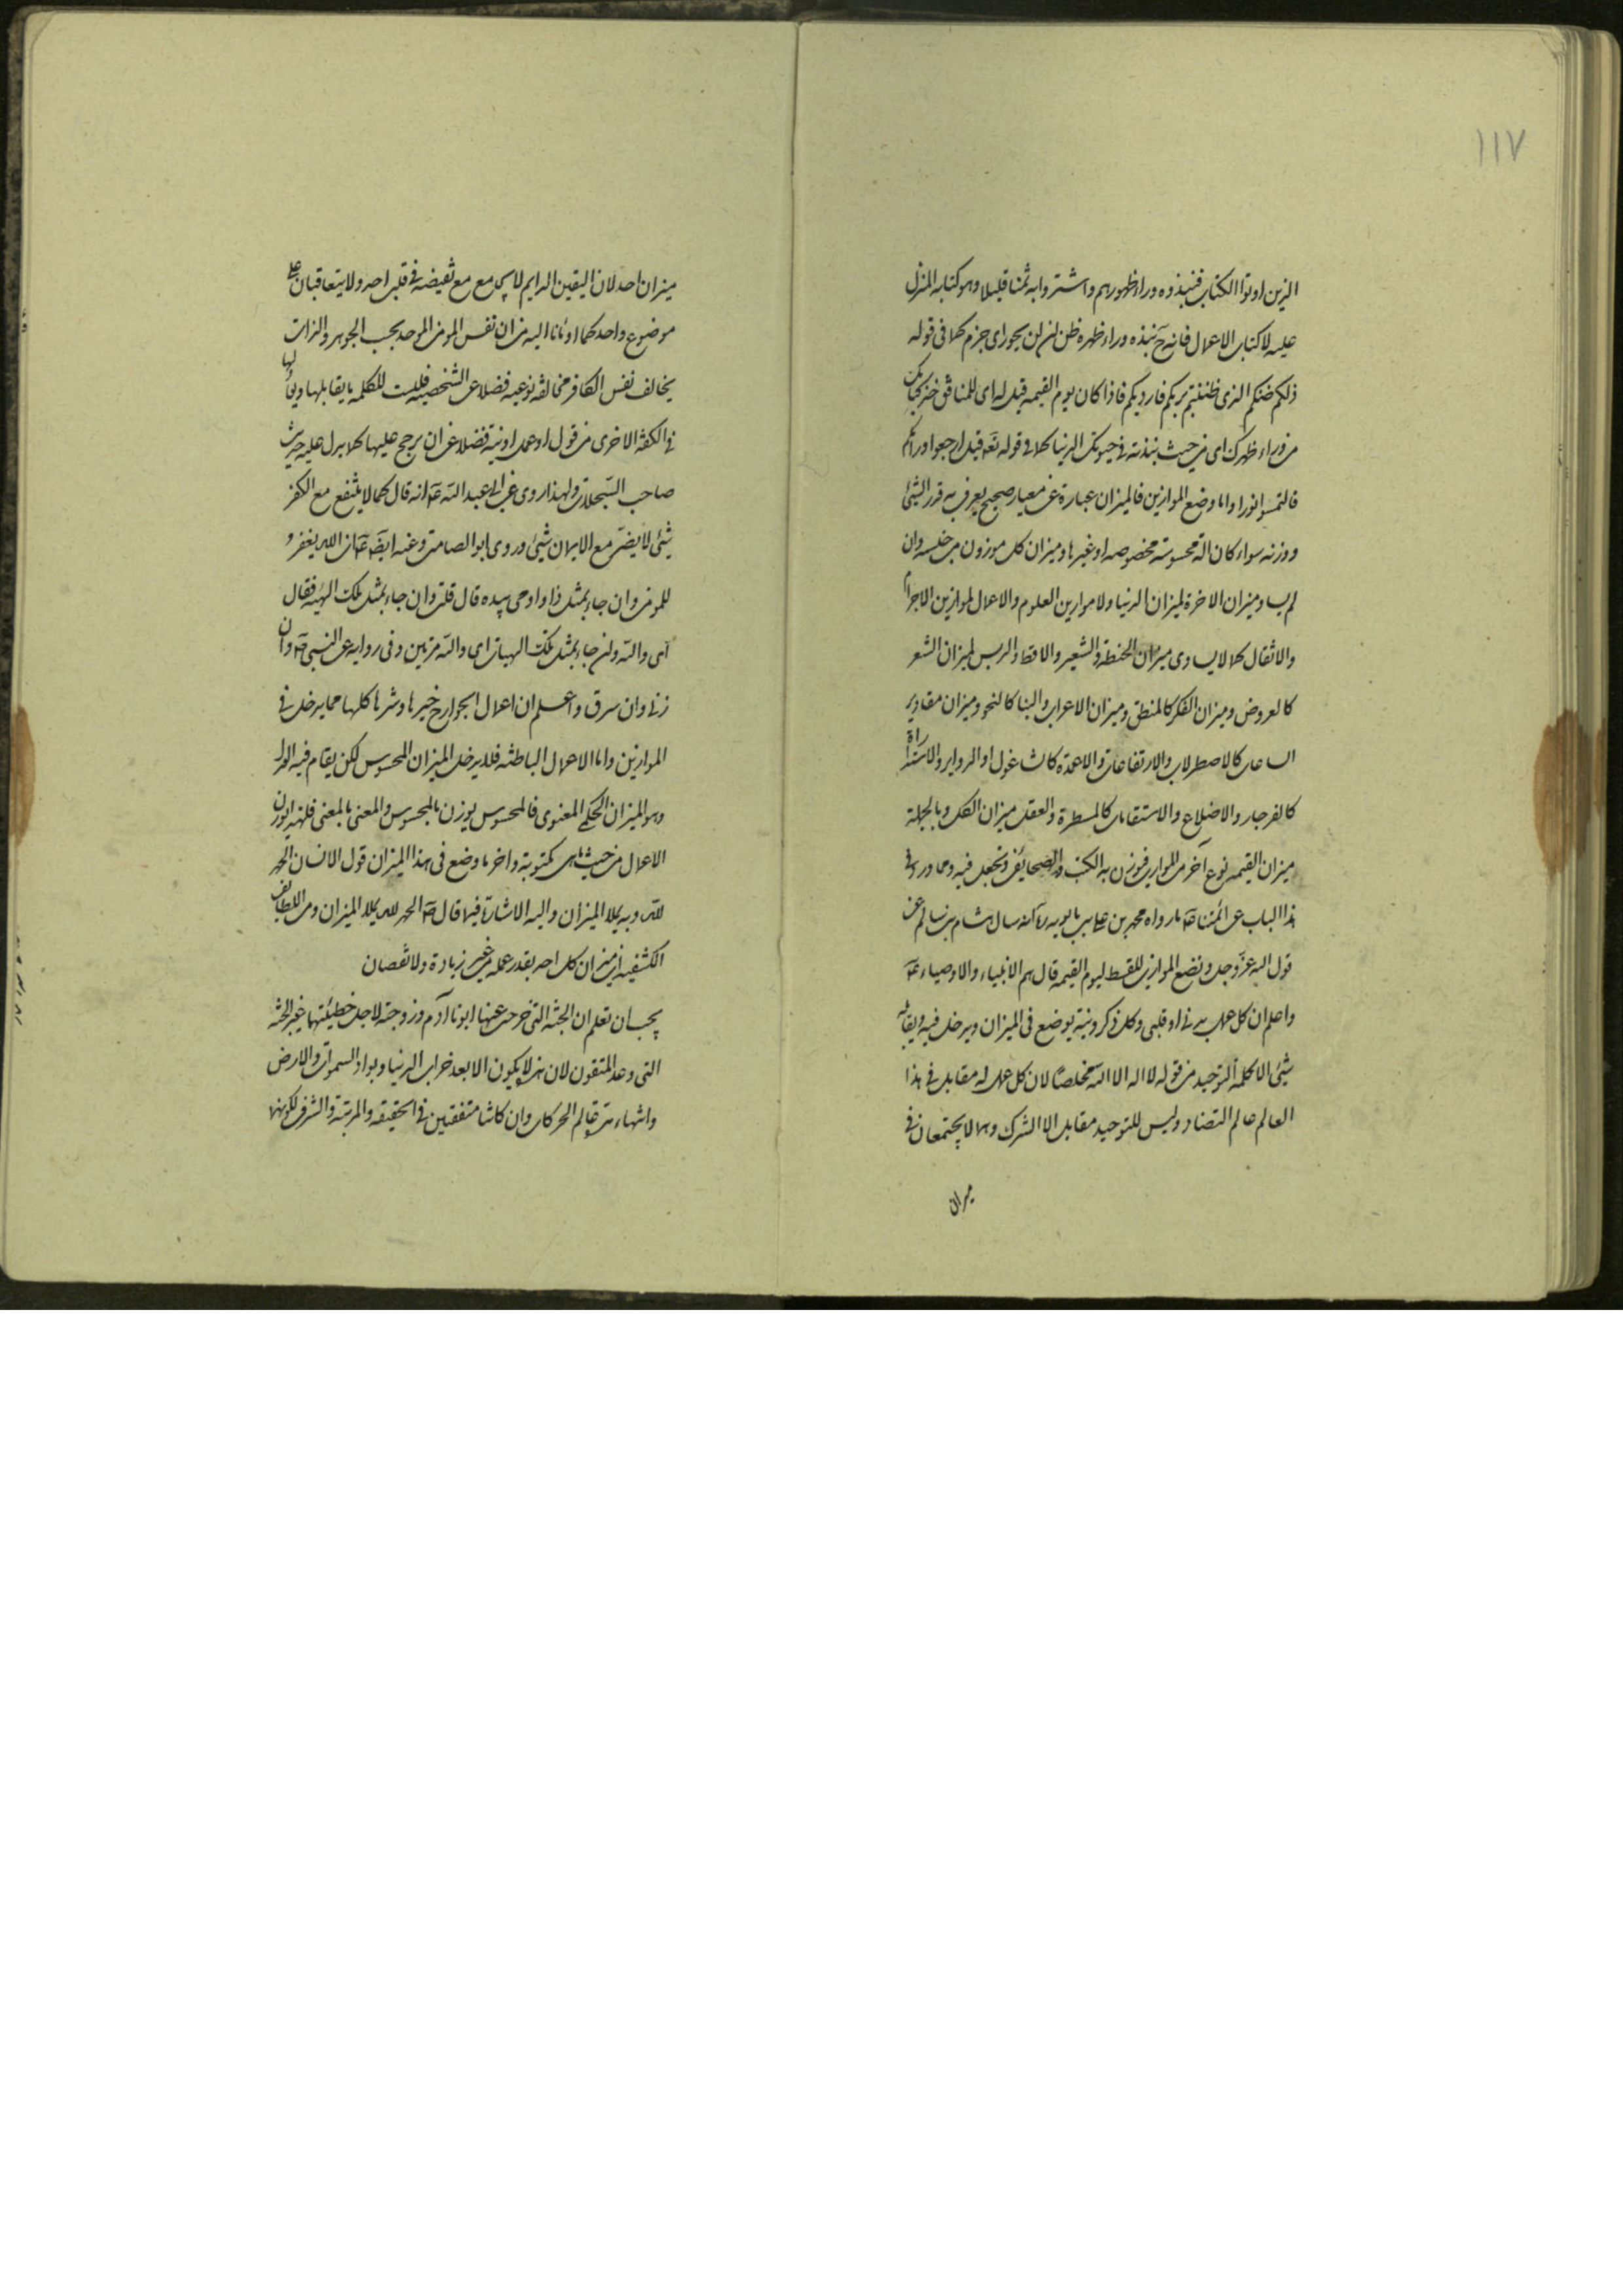 ١١٧
الذين اوتوا الكتاب فنبذوه وراء ظهورهم واشتروا به ثمنا قليلا وهو كتابه المنزل
عليه لا كتاب الاعمال فانه ح نبذه وراء ظهره ظن ان لن يحور اى جزم كما فى قوله
ذلكم ظنكم الذى ظننتم بربكم فارديكم فاذا كان يوم القيمه قيل له اى للمنافق خذ كتابك
من وراء ظهرك اى من حيث نبذته فى حيوتك الدنيا كما فى قوله تعه قيل ارجعوا وراءكم
فالتمسوا نورا واما وضع الموازين فالميزان عبارة عن معيار صحيح يعرف به قدر الشئ
ووزنه سواء كان الة محسوسته مخصوصه او غيرها وميزان كل موزون من جنسه وان
لم يساو ميزان الاخرة لميزان الدنيا ولا موازين العلوم والاعمال لموازين الاجرام
والاثقال كما لا يساوى ميزان الحنطة والشعير والاقط والدبس لميزان الشعر
كالعروض وميزان الفكر كالمنطق وميزان الاعراب والبنا كالنحو وميزان مقادير
الساعات كالاصطرلاب والارتفاعات والاعمدة كالشاغول او الدواير والاستدارة
كالفرجار والاضلاع والاستقامات كالمسطرة والعقل ميزان الكل وبالجملة
ميزان القيمه نوع آخر من الموازين فيوزن به الكتب والصحايف وتجعل فيه ومما ورد فى
هذا الباب عن ائمتنا عه ما رواه محمد بن على بن بابويه ره انه سال هشام بن سالم عن
قول اليه عز وجل ونضع الموازين القسط ليوم القيمه قال هم الانبياء والاوصياء عه
واعلم ان كل عمل بدنى او قلبى وكل ذكر ونية يوضع فى الميزان ويدخل فيه ويقابله
شئ الا كلمة التوحيد من قوله لا اله الا الله مخلصا لان كل عمل له مقابل فى هذا
العالم عالم التضاد وليس للتوحيد مقابل الا الشرك وهما لا يجتمعان فى
ميزان
ميزان احد لان اليقين الدايم لا يجامع مع نقيضه فى قلب احد ولا يتعاقبان على
موضوع واحد كما اومانا اليه من ان نفس المومن الموحد بحسب الجوهر والذات
يخالف نفس الكافر مخالفه نوعيه فضلا عن الشخصيه فليست للكلمه ما يقابلها ويعادلها
فى الكفة الاخرى من قول او عمل او نية فضلا عن ان يرجح عليها كما يدل عليه حديث
صاحب السجلات ولهذا روى عن ابى عبد الله عه انه قال كما لا ينفع مع الكفر
شئ لا يضر مع الايمان شئ وروى ابو الصامت وعنه ايضه عه ان الله يغفر
للمومن وان جاء بمثل ذا واومى بيده قال قلت وان جاء بمثل تلك الهيه فقال
اى والله وان جاء بمثل تلك الهيات اى والله مرتين وفى روايه عن النبى صه وان
زنى وان سرق واعلم ان اعمال الجوارح خيرها وشرها كلها مما يدخل فى
الموازين واما الاعمال الباطنه فلا يدخل الميزان المحسوس لكن يقام فيه العدل
وهو الميزان الحكمى المعنوى فالمحسوس يوزن بالمحسوس والمعنى بالمعنى فلهذا يوزن
الاعمال من حيث هى مكتوبة واخر ما وضع فى هذا الميزان قول الانسان الحمد
لله وبه يملا الميزان واليه الاشارة فيما قال صه الحمد لله يملا الميزان ومن اللطايف
الكشفيه ان ميزان كل احد بقدر عمله من غير زيادة ولا نقصان
يجب ان تعلم ان الجنه التى خرجت عنها ابونا آدم وزوجته لاجل خطيئتهما غير الجنه
التى وعد المتقون لان هذه لا يكون الا بعد خراب الدنيا وبوار السموات والارض
وانتهاء مدة عالم الحركات وان كانتا متفقتين فى الحقيقه والمرتبة والشرف لكونهما